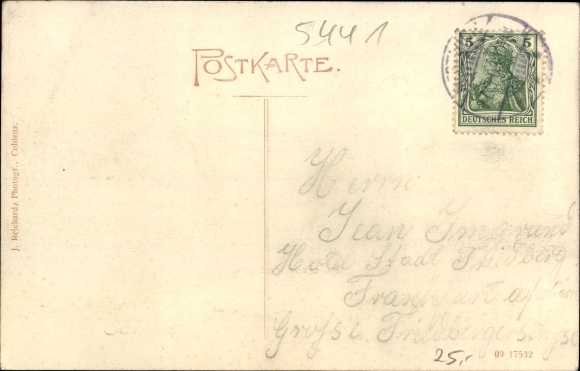 5441
POSTKARTE.
5 5
DEUTSCHES REICH
J. Reichard, Photogr., Coblenz.
Herrn
Jean Imgrund
Hotel Stadt Friedberg
Frankfurt a/
Große Friedbergerstr
25,-
09 17532